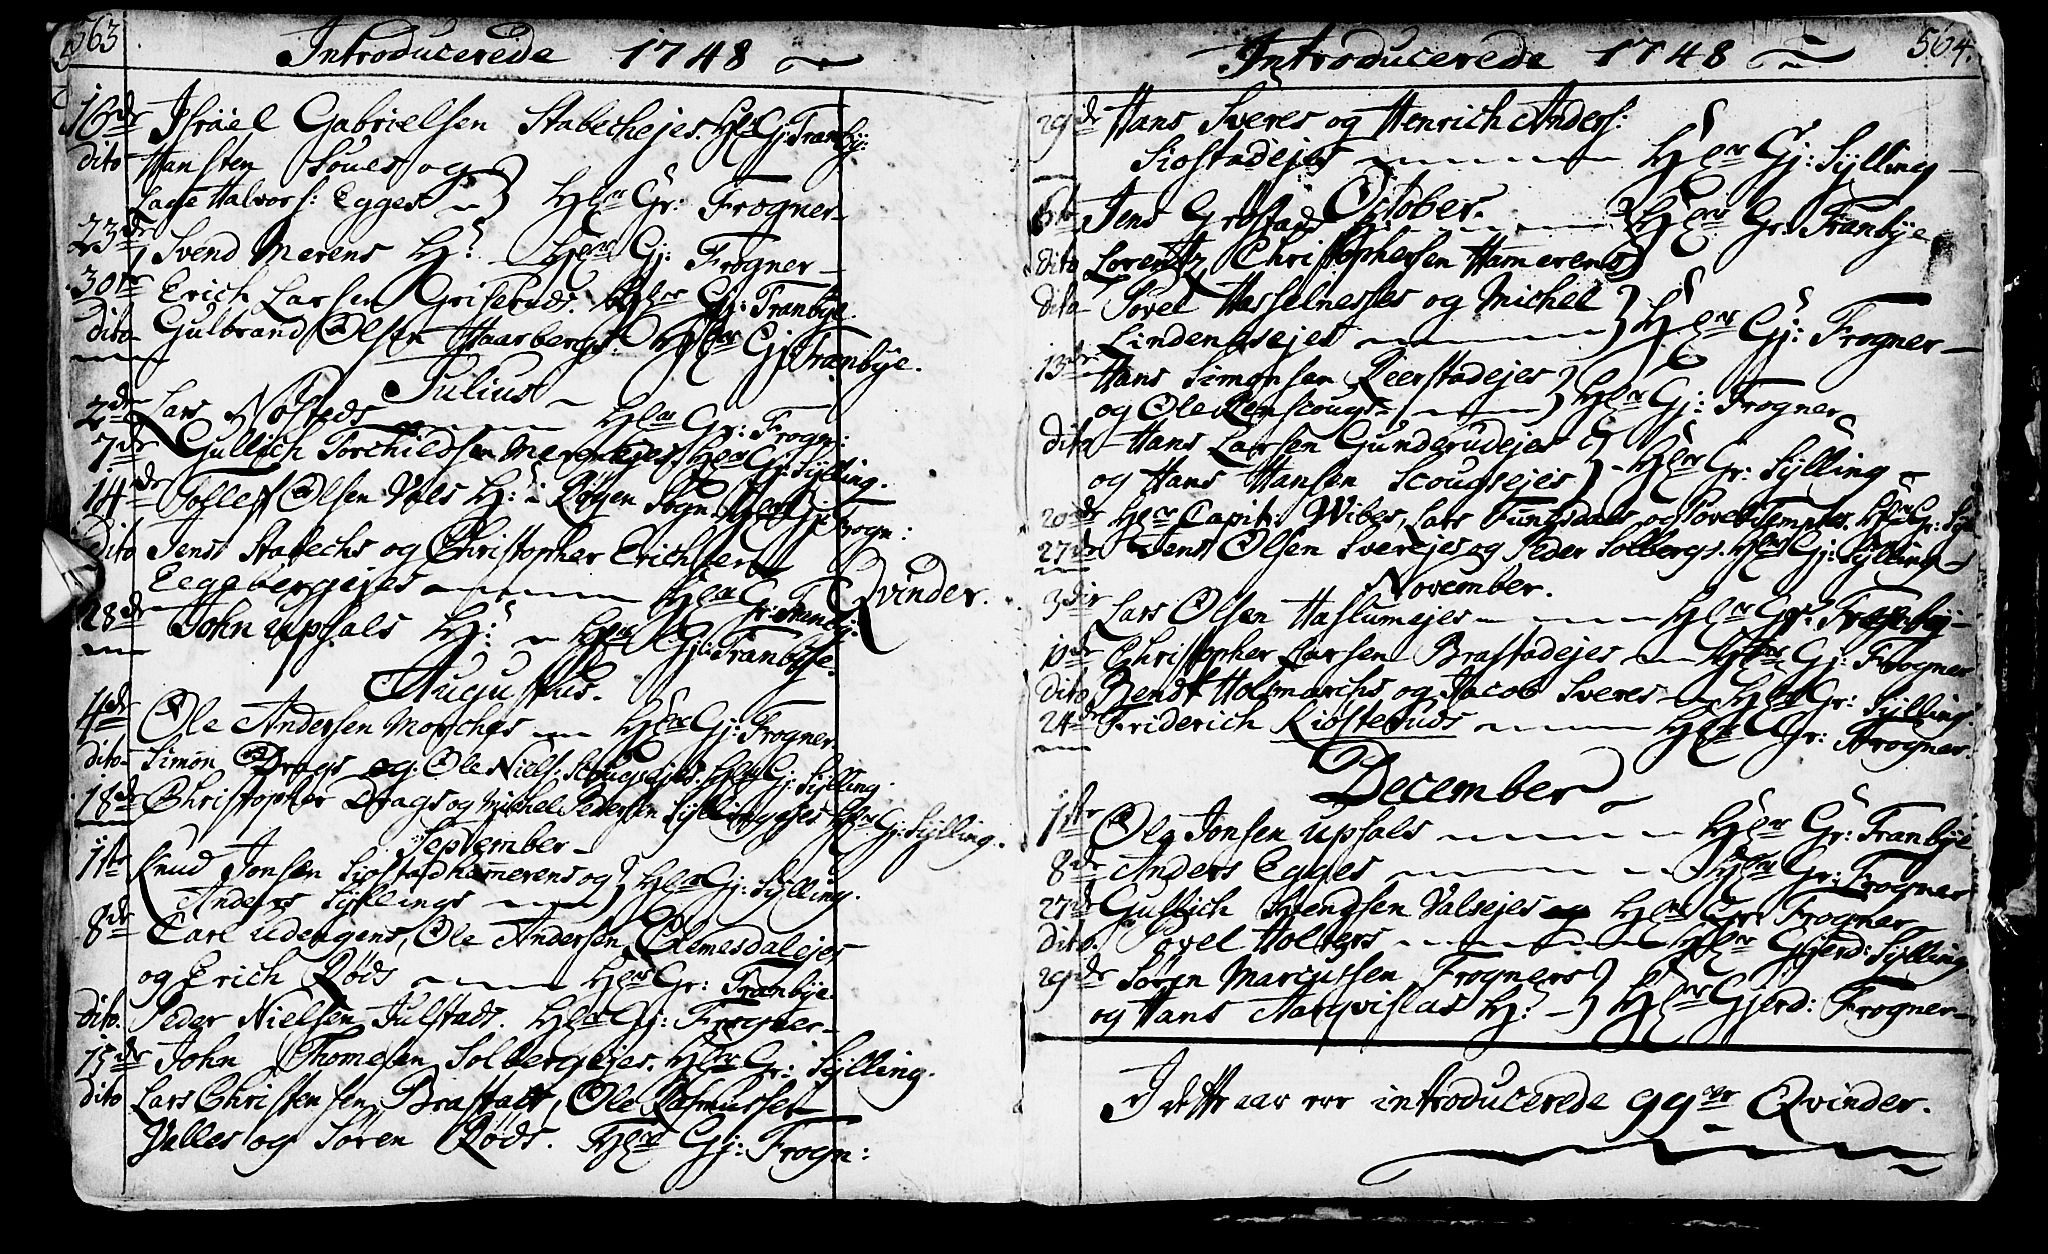 563
Introducerede 1748
16de Israel Gabrielsen Stabechejes. Hler Gj: Tranby:
dito Hansten Soues og
Lage Halvors: Egges } Hler Gr: Frogner
23de Svend Merens H: Hler Gj: Frogner
30te Erich Larsen Griseruds. Hler Gj: Tranbye.
dito Gulbrand Olsen Haarbergs: Hler Gj: Tranbye.
Julius
2den Lars Nøsteds Hler Gr: Frogn:
7de Gullich Torchildsen Merenejes. Hler Gr: Sylling.
14de Tollef Olsen Vals H: i Røgen Sogn. Hler Gj: Frogn:
Dito Jens Stabechs og Christopher Erichsen
Eggebergejes Hler Gr: Tranby:
Qvinder.
28de John Upsals H: Hler Gj: Tranbye.
Augustus.
4de Ole Andersen Morches Hler Gj: Frogner.
dito Simon Drags og: Ole Niels: Scougsejes. Hler Gj: Sylling.
18de Christopher Drags og Michel Pedersen Syllingejes Hler Gj: Sylling.
September
1ste Knud Jonsen Siostadhamerens og } Hler Gj: Sylling.
Anders Syllings
8de Carl Udengens, Ole Andersen Elmesdalejes
og Erich Røds Hler Gr: Tranbye.
dito. Peder Nielsen Julstads. Hler Gj: Frogner
15de John Thomesen Solbergejes. Hler Gr: Sylling.
dito Lars Christensen Brastads, Ole Rasmussen
Valles og Søren Røds. Hler Gj: Frogn:
564.
Introducerede 1748
29de Hans Sveres og Henrich Anders:
Siostadejes Hler Gj: Sylling
October.
6te Jens Grøstad H: Hler Gr: Tranbye
dito Lorentz Christophersen Hamerens
dito Povel Hasselnesses og Michel
Lindenesejes } Hler Gj: Frogner
13de Hans Simonsen Reerstadejes
og Ole Renscougs } Hler Gj: Frogner
dito Hans Larsen Gunderudejes
og Hans Hansen Scougsejes } Hler Gr: Sylling
20de Hler Capit: Wibes, Lars Tungsdals og Povel Temptes. Hler Gr: Syl
27de Jens Olsen Sverejes og Peder Solbergs. Hler Gj: Sylling
November.
3die Lars Olsen Haslumejes Hler Gr: Tranby
10de Christopher Larsen Brastadejes Hler Gj: Frogner
dito Bendt Holmarchs og Jacob Sveres Hler Gr: Sylling.
24de Friderich Kiosteruds Hler Gr: Frogner.
December
1ste Ole Jonsen Upsals Hler Gr: Tranbye
8de Anders Egges Hler Gr: Frogner
27de Gullich Svendsen Valsejes Hler Gr: Frogner
dito. Povel Holters Hler Gjerd: Sylling
29de Søren Marcussen Frogners
og Hans Aarqvislas H: } Hler Gjerd: Frogner
I dette aar ere introducerede 99ve Qvinder.